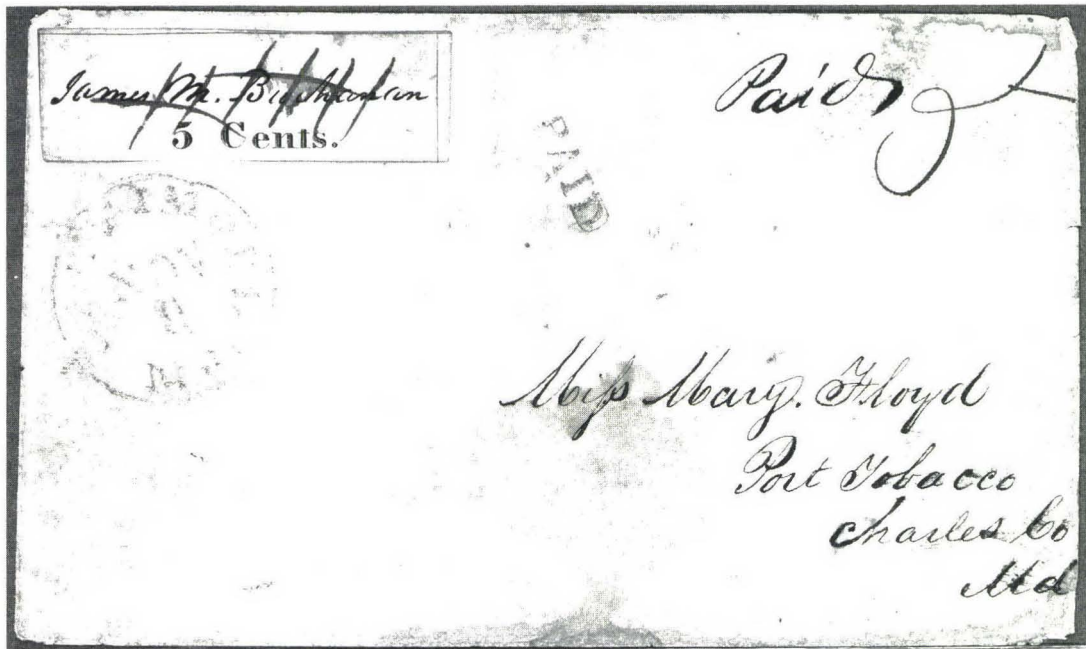 James M. Buchanan
5 Cents.
Paid
PAID
Miss Mary. Floyd
Port Tobacco
Charles Co
Md